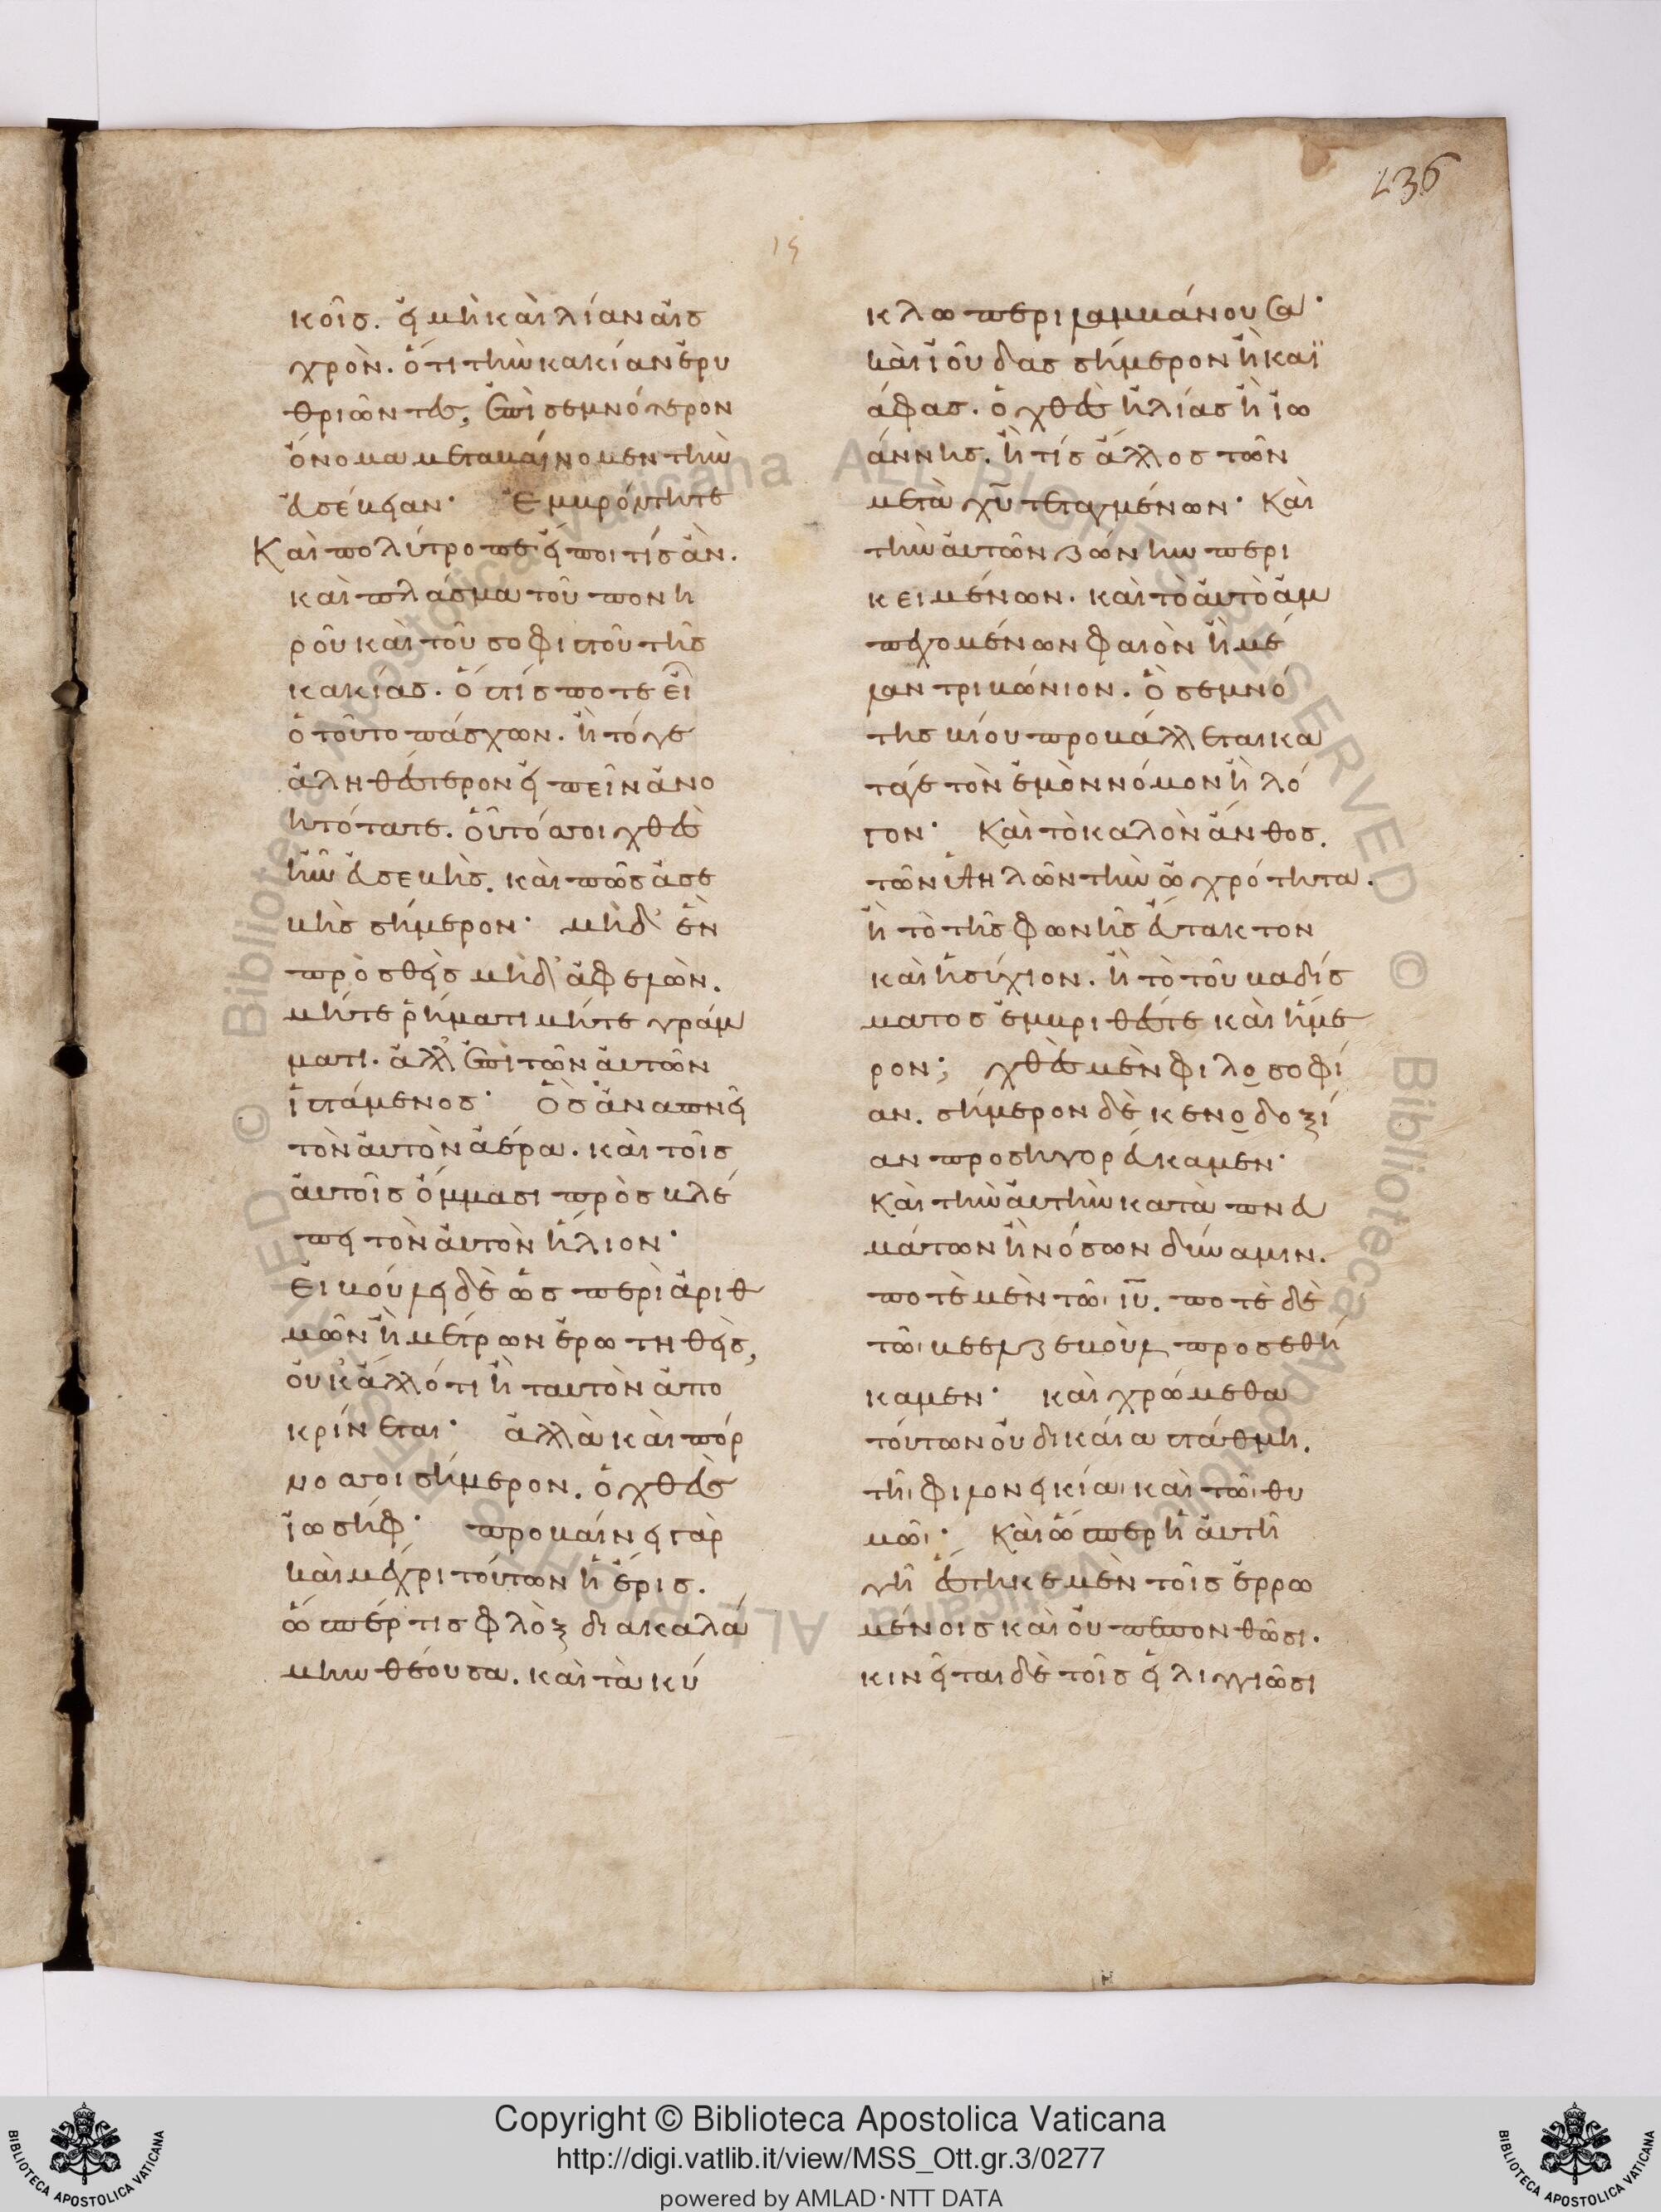 136
15
κοῖσ. εἰ μὴ καὶ λίαν αἰσ
χρὸν. ὅτι τὴν κακίαν ἐρυ
θριῶντες, ἐπὶ σεμνότερον
ὄνομα μεταβαίνομεν τὴν
ἀσέβειαν· Ἐμβρόντητε
Καὶ πολύτροπε εἴποι τίσ ἂν.
καὶ πλάσμα τοῦ πονη
ροῦ καὶ τοῦ σοφιστοῦ τῆσ
κακίασ. ὅστίσ ποτε εἶ
ὁ τοῦτο πάσχων. ἢ τόγε
ἀληθέστερον εἰπεῖν ἀνο
ητότατε. οὗτόσ σοι χθὲσ
ἦν ἀσεβὴσ. καὶ πῶσ ἀσε
βὴσ σήμερον· μηδ' ἓν
πρὸσθεὶσ μὴδ' ἀφελὼν.
μήτε ῥήματι μήτε γράμ
ματι. ἀλλ' ἐπὶ τῶν αὐτῶν
ἱστάμενοσ· Ὃσ ἀναπνεῖ
τὸν αὐτὸν ἀέρα. καὶ τοῖσ
αὐτοῖσ ὄμμασι πρὸσβλέ
πει τὸν αὐτὸν ἥλιον·
εἰ βούλει δὲ ὡσ περὶ ἀριθ
μῶν ἢ μέτρων ἐρωτηθεὶσ,
οὐκ ἄλλό τι ἢ ταυτὸν ἀπο
κρίνεται· ἀλλὰ καὶ πόρ
νοσ σοι σήμερον. ὁ χθὲσ
ἰωσήφ· προβαίνει γὰρ
καὶ μέχρι τούτων ἡ ἔρισ.
ὥσπέρ τισ φλὸξ διακαλά
μην θέουσα. καὶ τὰ κύ
κλω περιλαμβάνουσα·
καὶ ἰοῦδασ σήμερον ἢ καϊ
άφασ. ὁ χθὲσ ἡλίασ ἢ ἰω
άννησ. ἤ τίσ ἄλλοσ τῶν
μετὰ χῦ τεταγμένων· Καὶ
τὴν αὐτῶν ζώνην περι
κειμένων. καὶ τὸ αὐτὸ ἀμ
πεχομένων φαιὸν ἢ μέ
λαν τριβώνιον. ὃ σεμνό
τησ βίου προβάλλεται κα
τάγε τὸν ἐμὸν νόμον ἢ λό
γον· Καὶ τὸ καλὸν ἄνθοσ.
τῶν ὑψηλῶν τὴν ὠχρότητα.
ἢ τὸ τῆσ φωνῆσ εὔτακτον
καὶ ἡσύχιον. ἢ τὸ τοῦ βαδίσ
ματοσ ἐμβριθέστε καὶ ἥμε
ρον; χθὲσ μὲν φιλοσοφί
αν. σήμερον δὲ κενοδοξί
αν προσηγορεύκαμεν·
Καὶ τὴν αὐτὴν κατὰ πνευ
μάτων ἢ νόσων δύναμιν.
ποτὲ μὲν τῶι ιῦ. ποτὲ δὲ
τῶι βεελζεβοὺλ προσεθή
καμεν· καὶ χρώμεθα
τούτων οὐ δικαία στάθμη.
τῆι φιλονεικίαι καὶ τῶι θυ
μῶι· Καὶ ὥσπερ ἡ αὐτὴ
γῆ ἕστηκε μὲν τοῖσ ἐρρω
μένοισ καὶ οὐ πεπονθῶσι.
κινεῖται δὲ τοῖσ εἰλιγγιῶσι
BIBLIOTECA APOSTOLICA VATICANA
Copyright © Biblioteca Apostolica Vaticana
http://digi.vatlib.it/view/MSS_Ott.gr.3/0277
powered by AMLAD·NTT DATA
BIBLIOTECA APOSTOLICA VATICANA